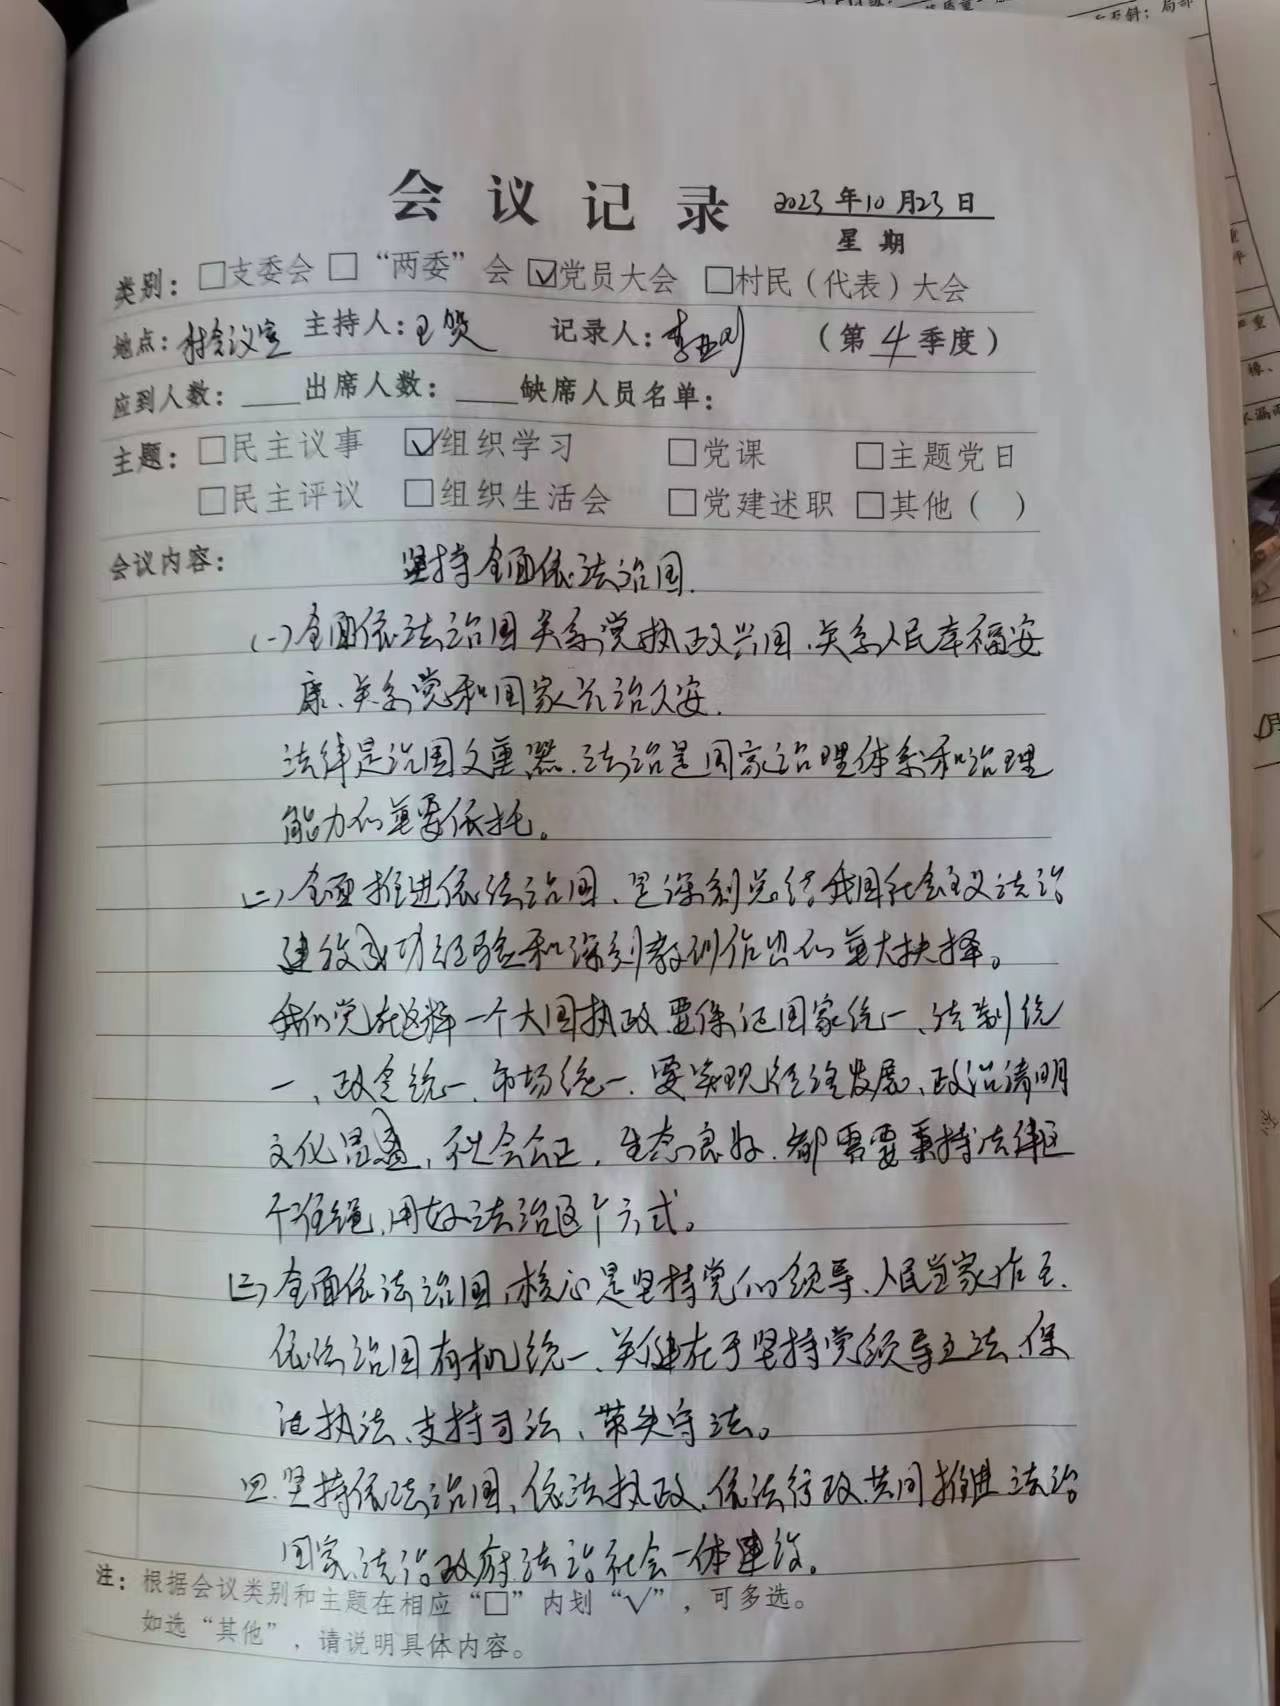 会议记录 2023年10月23日
星期
类别：□支委会 □“两委”会 ☑党员大会 □村民（代表）大会
地点：村会议室 主持人：王 记录人：李亚刚 （第4季度）
应到人数：____出席人数：____缺席人员名单：
主题：□民主议事 ☑组织学习 □党课 □主题党日
□民主评议 □组织生活会 □党建述职 □其他（ ）
会议内容： 坚持全面依法治国.
(一)全面依法治国关系党执政兴国、关系人民幸福安
康、关系党和国家长治久安.
法律是治国之重器.法治是国家治理体系和治理
能力的重要依托。
(二)全面推进依法治国、是深刻总结我国社会主义法治
建设成功经验和深刻教训作出的重大抉择。
我们党在这样一个大国执政.要保证国家统一、法制统
一、政令统一、市场统一.要实现经济发展、政治清明
文化昌盛、社会公正、生态良好.都需要秉持法律这
个准绳、用好法治这个方式。
(三)全面依法治国,核心是坚持党的领导、人民当家作主、
依法治国有机统一、关键在于坚持党领导立法、保
证执法、支持司法、带头守法。
四.坚持依法治国、依法执政、依法行政共同推进 法治
国家、法治政府、法治社会一体建设。
注：根据会议类别和主题在相应“□”内划“√”，可多选。
如选“其他”，请说明具体内容。